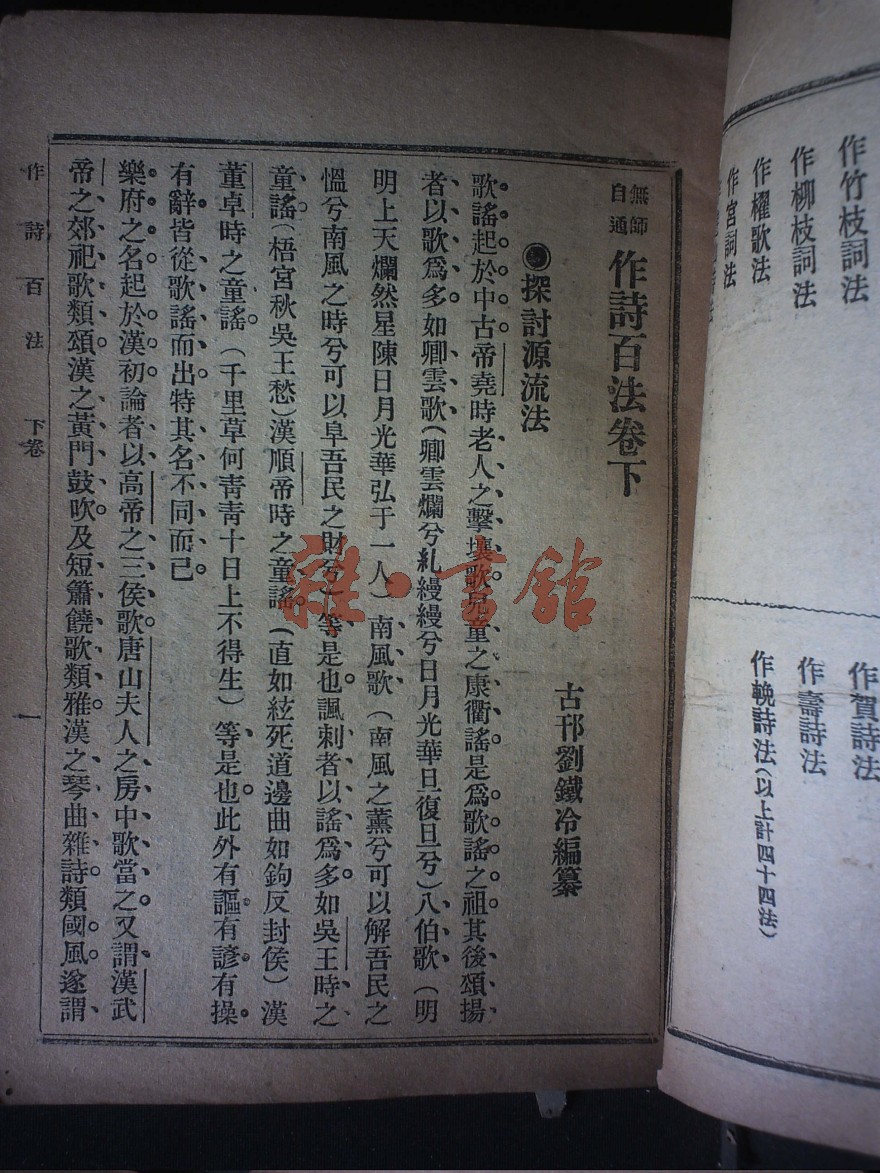 作竹枝詞法
作柳枝詞法
作櫂歌法
作宮詞法
作賀詩法
作壽詩法
作輓詩法（以上計四十四法）
無師自通 作詩百法卷下
古邗劉鐵冷編纂
探討源流法
歌謠起於中古帝堯時老人之擊壤歌兒童之康衢謠是爲歌謠之祖其後頌揚
者以歌爲多如卿雲歌（卿雲爛兮糺縵縵兮日月光華旦復旦兮）八伯歌（明
明上天爛然星陳日月光華弘于一人）南風歌（南風之薰兮可以解吾民之
慍兮南風之時兮可以阜吾民之財兮）等是也諷刺者以謠爲多如吳王時之
童謠（梧宮秋吳王愁）漢順帝時之童謠（直如絃死道邊曲如鉤反封侯）漢
董卓時之童謠（千里草何靑靑十日上不得生）等是也此外有謳有諺有操
有辭皆從歌謠而出特其名不同而已
樂府之名起於漢初論者以高帝之三侯歌唐山夫人之房中歌當之又謂漢武
帝之郊祀歌類頌漢之黃門鼓吹及短簫饒歌類雅漢之琴曲雜詩類國風遂謂
作詩百法 下卷 一
雜·書館